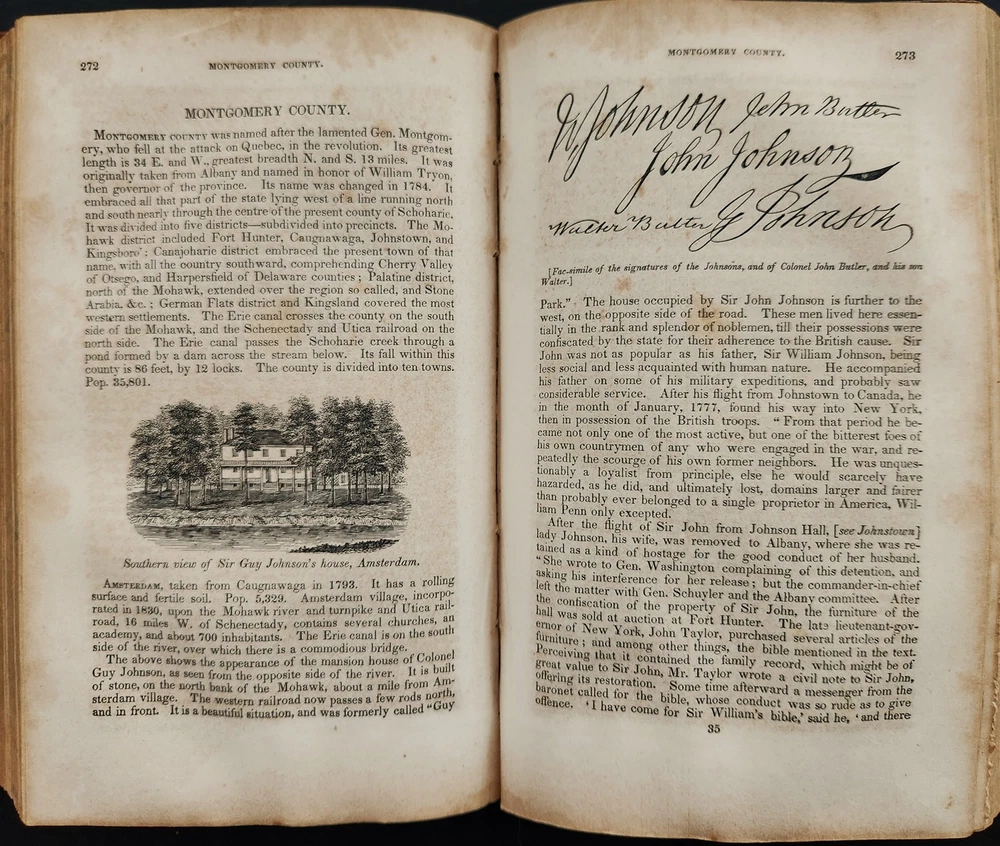 272
MONTGOMERY COUNTY.
MONTGOMERY COUNTY.
MONTGOMERY COUNTY was named after the lamented Gen. Montgom-
ery, who fell at the attack on Quebec, in the revolution. Its greatest
length is 34 E. and W., greatest breadth N. and S. 13 miles. It was
originally taken from Albany and named in honor of William Tryon,
then governor of the province. Its name was changed in 1784. It
embraced all that part of the state lying west of a line running north
and south nearly through the centre of the present county of Schoharie.
It was divided into five districts—subdivided into precincts. The Mo-
hawk district included Fort Hunter, Caugnawaga, Johnstown, and
Kingsboro'; Canajoharie district embraced the present town of that
name, with all the country southward, comprehending Cherry Valley
of Otsego, and Harpersfield of Delaware counties; Palatine district,
north of the Mohawk, extended over the region so called, and Stone
Arabia, &c.; German Flats district and Kingsland covered the most
western settlements. The Erie canal crosses the county on the south
side of the Mohawk, and the Schenectady and Utica railroad on the
north side. The Erie canal passes the Schoharie creek through a
pond formed by a dam across the stream below. Its fall within this
county is 86 feet, by 12 locks. The county is divided into ten towns.
Pop. 35,801.
Southern view of Sir Guy Johnson's house, Amsterdam.
AMSTERDAM, taken from Caugnawaga in 1793. It has a rolling
surface and fertile soil. Pop. 5,329. Amsterdam village, incorpo-
rated in 1830, upon the Mohawk river and turnpike and Utica rail-
road, 16 miles W. of Schenectady, contains several churches, an
academy, and about 700 inhabitants. The Erie canal is on the south
side of the river, over which there is a commodious bridge.
The above shows the appearance of the mansion house of Colonel
Guy Johnson, as seen from the opposite side of the river. It is built
of stone, on the north bank of the Mohawk, about a mile from Am-
sterdam village. The western railroad now passes a few rods north,
and in front. It is a beautiful situation, and was formerly called "Guy
MONTGOMERY COUNTY.
273
W Johnson John Butler
John Johnson
Walter Butler G Johnson
[Fac-simile of the signatures of the Johnsons, and of Colonel John Butler, and his son
Walter.]
Park." The house occupied by Sir John Johnson is further to the
west, on the opposite side of the road. These men lived here essen-
tially in the rank and splendor of noblemen, till their possessions were
confiscated by the state for their adherence to the British cause. Sir
John was not as popular as his father, Sir William Johnson, being
less social and less acquainted with human nature. He accompanied
his father on some of his military expeditions, and probably saw
considerable service. After his flight from Johnstown to Canada, he
in the month of January, 1777, found his way into New York,
then in possession of the British troops. "From that period he be-
came not only one of the most active, but one of the bitterest foes of
his own countrymen of any who were engaged in the war, and re-
peatedly the scourge of his own former neighbors. He was unques-
tionably a loyalist from principle, else he would scarcely have
hazarded, as he did, and ultimately lost, domains larger and fairer
than probably ever belonged to a single proprietor in America, Wil-
liam Penn only excepted.
After the flight of Sir John from Johnson Hall, [see Johnstown]
lady Johnson, his wife, was removed to Albany, where she was re-
tained as a kind of hostage for the good conduct of her husband.
"She wrote to Gen. Washington complaining of this detention, and
asking his interference for her release; but the commander-in-chief
left the matter with Gen. Schuyler and the Albany committee. After
the confiscation of the property of Sir John, the furniture of the
hall was sold at auction at Fort Hunter. The late lieutenant-gov-
ernor of New York, John Taylor, purchased several articles of the
furniture; and among other things, the bible mentioned in the text.
Perceiving that it contained the family record, which might be of
great value to Sir John, Mr. Taylor wrote a civil note to Sir John,
offering its restoration. Some time afterward a messenger from the
baronet called for the bible, whose conduct was so rude as to give
offence. 'I have come for Sir William's bible,' said he, 'and there
35